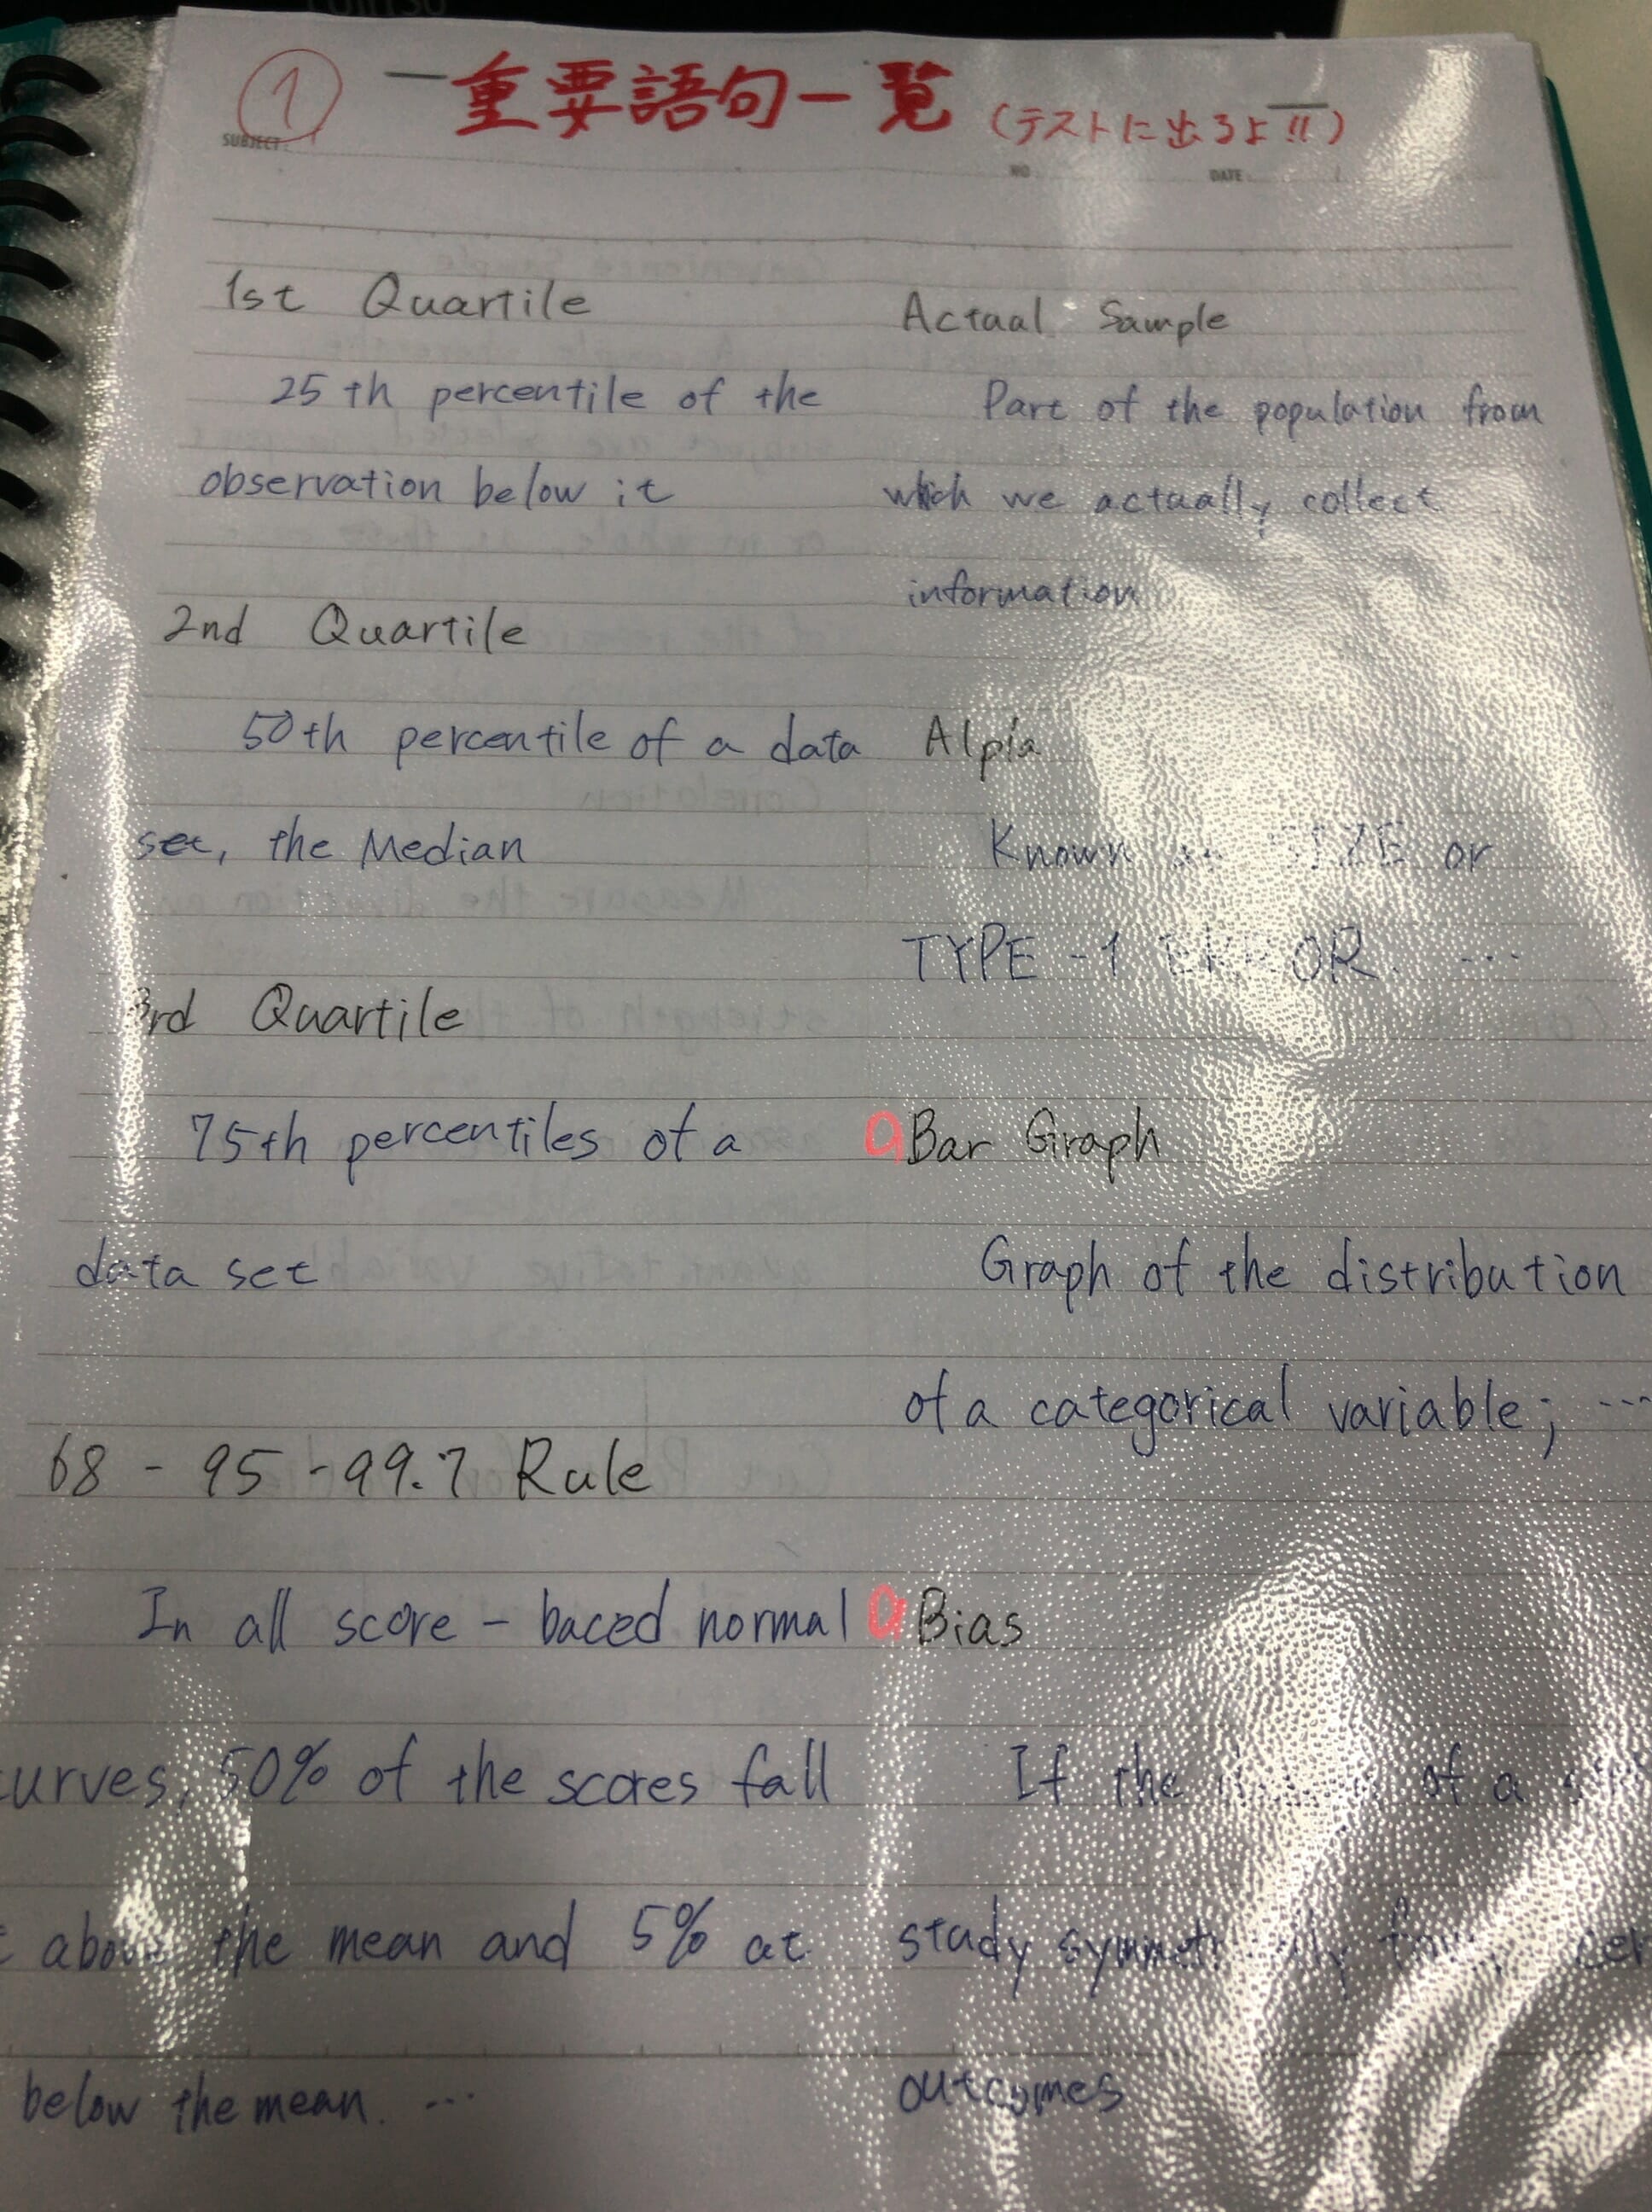 ① 重要語句一覧 (テストに出るよ!!)
SUBJECT
NO
DATE
1st Quartile
25th percentile of the
observation below it
2nd Quartile
50th percentile of a data
set, the Median
3rd Quartile
75th percentiles of a
data set
68-95-99.7 Rule
In all score-baced normal
curves, 50% of the scores fall
above the mean and 5% at
below the mean. ...
Actual Sample
Part of the population from
which we actually collect
information
Alpla
Known as SIZE or
TYPE-1 ERROR. ...
Bar Graph
Graph of the distribution
of a categorical variable; ...
Bias
If the of a
study
outcomes